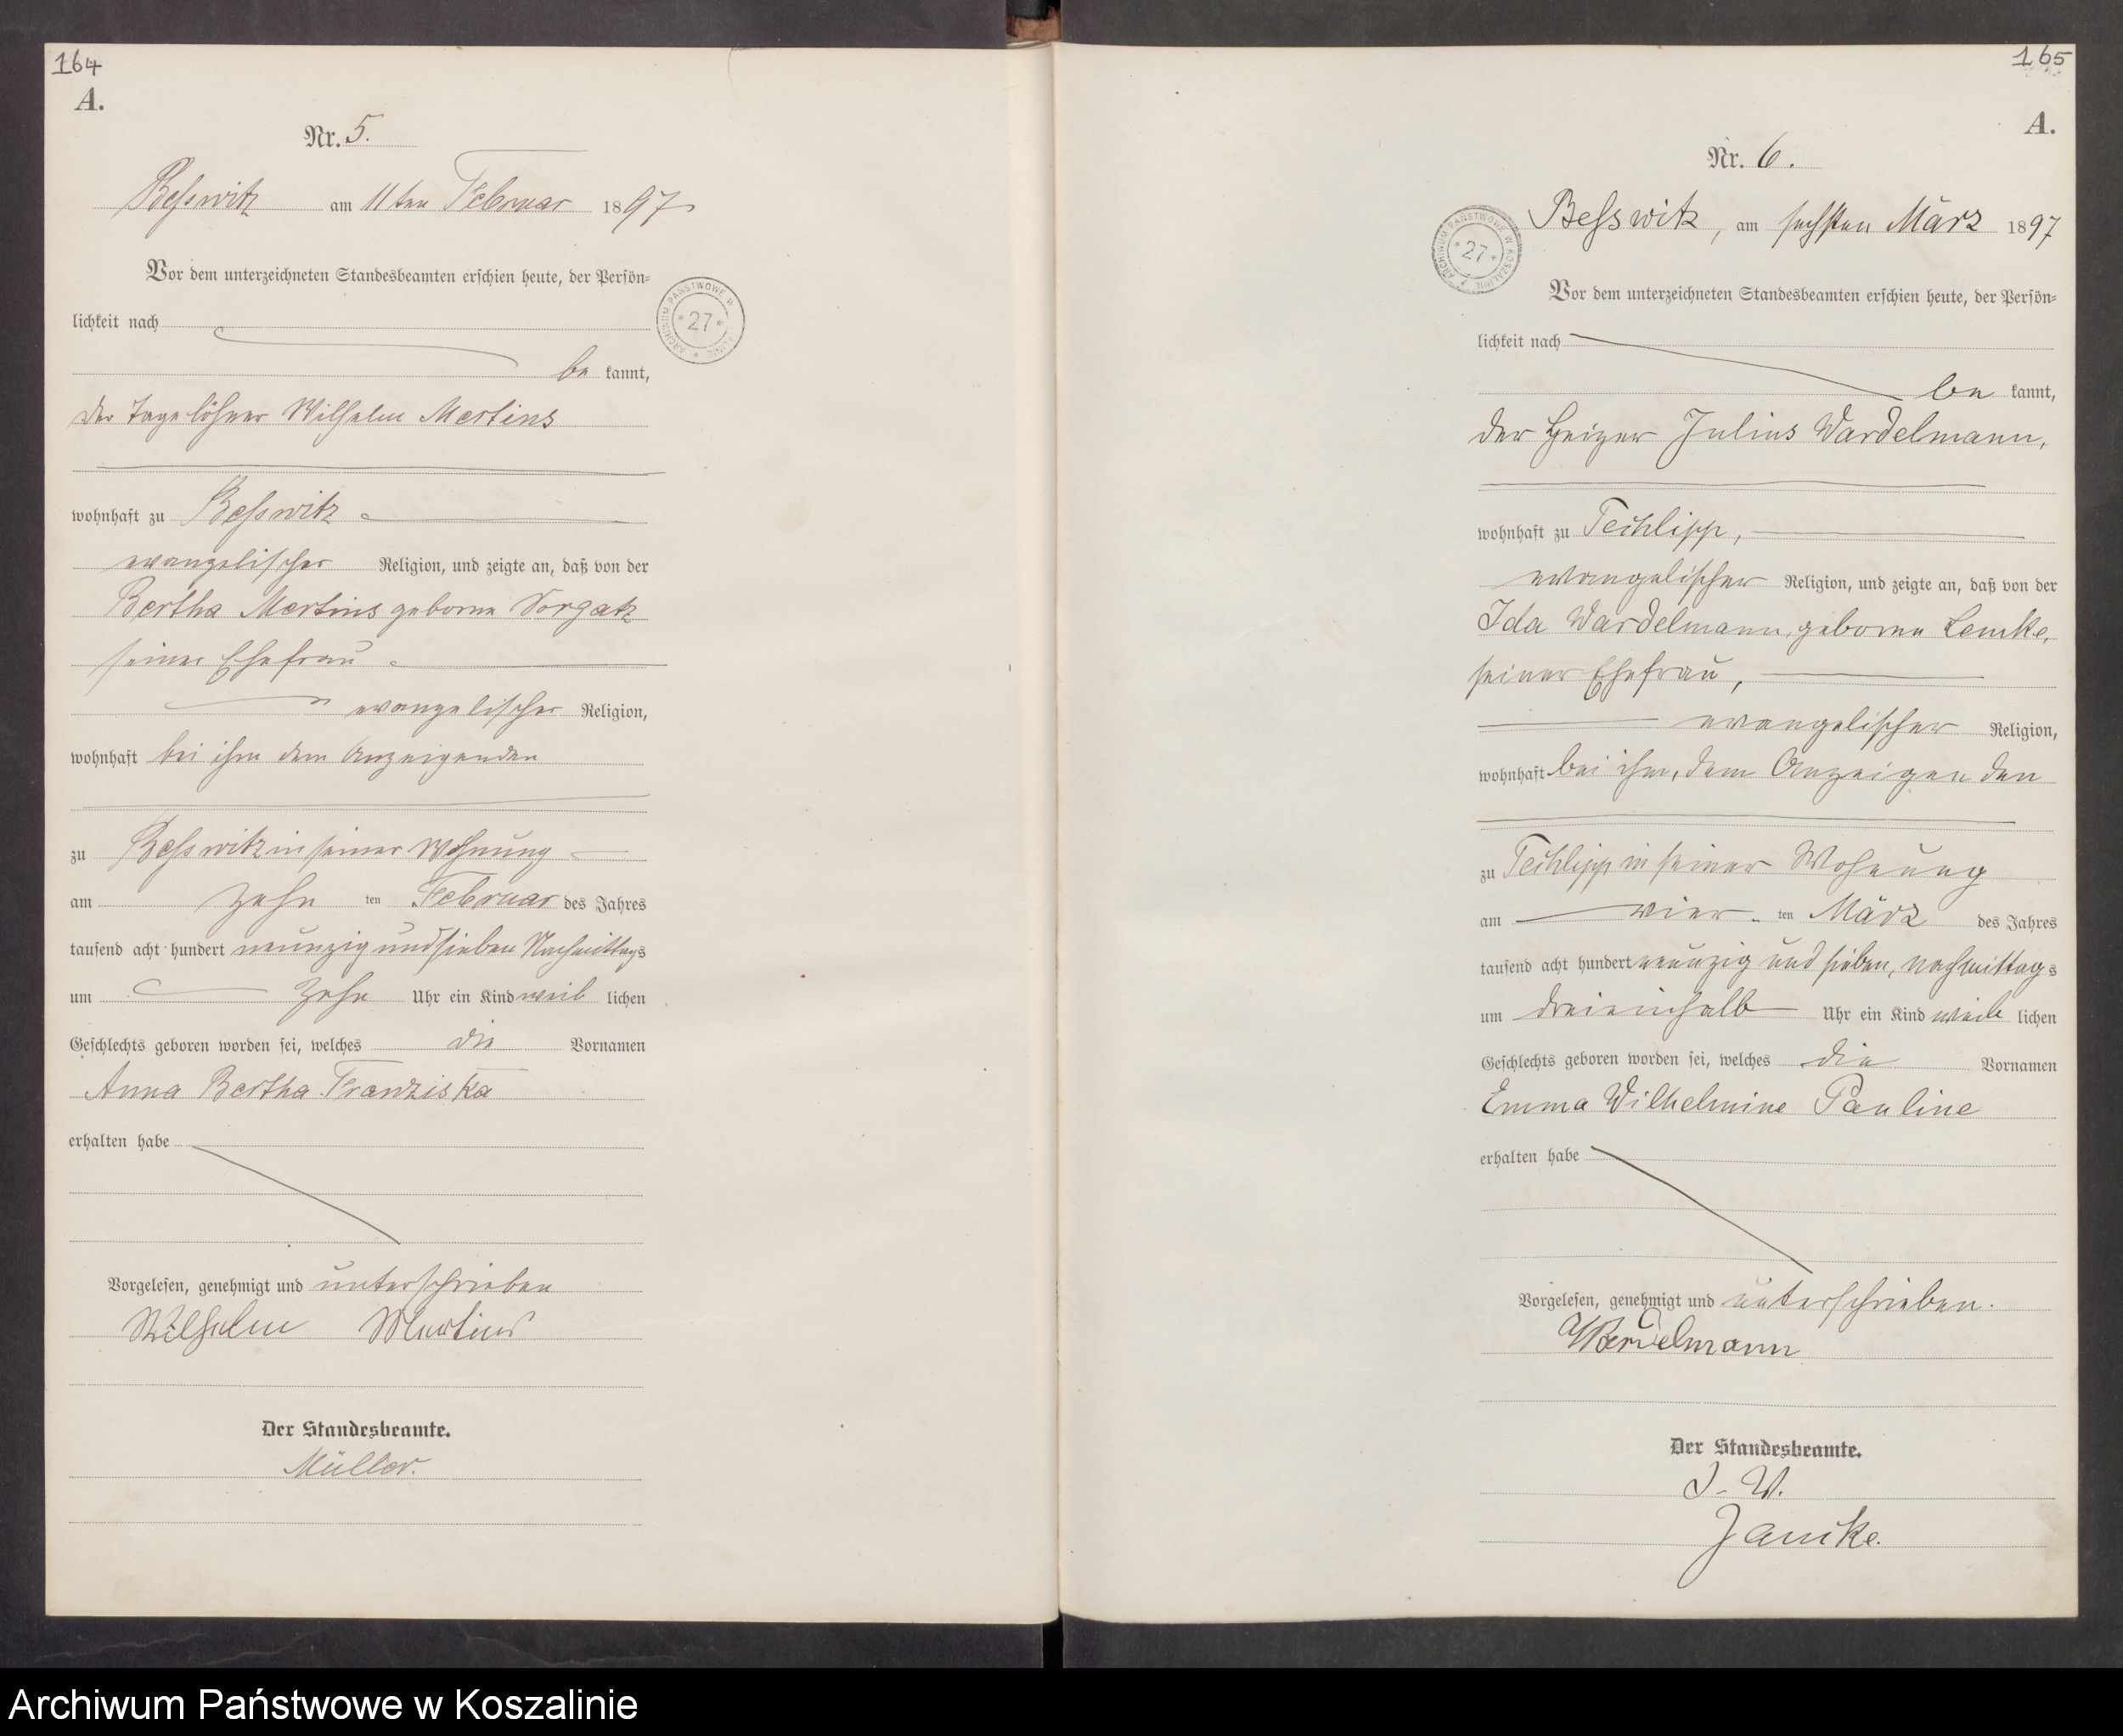 164
A.
Nr. 5.
Beßwitz am 11ten Februar 1897
Vor dem unterzeichneten Standesbeamten erschien heute, der Persön-
lichkeit nach
be kannt,
der Tagelöhner Wilhelm Mertins
wohnhaft zu Beßwitz
evangelischer Religion, und zeigte an, daß von der
Bertha Mertins geborne Vorgatz
seiner Ehefrau
evangelischer Religion,
wohnhaft bei ihm dem Anzeigenden
zu Beßwitz in seiner Wohnung
am zehn ten Februar des Jahres
tausend acht hundert neunzig und sieben Nachmittags
um zehn Uhr ein Kind weib lichen
Geschlechts geboren worden sei, welches die Vornamen
Anna Bertha Franziska
erhalten habe
Vorgelesen, genehmigt und unterschrieben
Wilhelm Mertins
Der Standesbeamte.
Müller.
ARCHIWUM PAŃSTWOWE W KOSZALINIE
* 27 *
165
A.
Nr. 6.
Beßwitz, am sechsten März 1897
ARCHIWUM PAŃSTWOWE W KOSZALINIE
* 27 *
Vor dem unterzeichneten Standesbeamten erschien heute, der Persön-
lichkeit nach
be kannt,
der Heizer Julius Wardelmann,
wohnhaft zu Techlipp,
evangelischer Religion, und zeigte an, daß von der
Ida Wardelmann, geborne Lemke,
seiner Ehefrau,
evangelischer Religion,
wohnhaft bei ihm, dem Anzeigenden
zu Techlipp in seiner Wohnung
am vier ten März des Jahres
tausend acht hundert neunzig und sieben, nachmittags
um dreieinhalb Uhr ein Kind weib lichen
Geschlechts geboren worden sei, welches die Vornamen
Emma Wilhelmine Pauline
erhalten habe
Vorgelesen, genehmigt und unterschrieben.
Wardelmann
Der Standesbeamte.
J. V.
Janike.
Archiwum Państwowe w Koszalinie